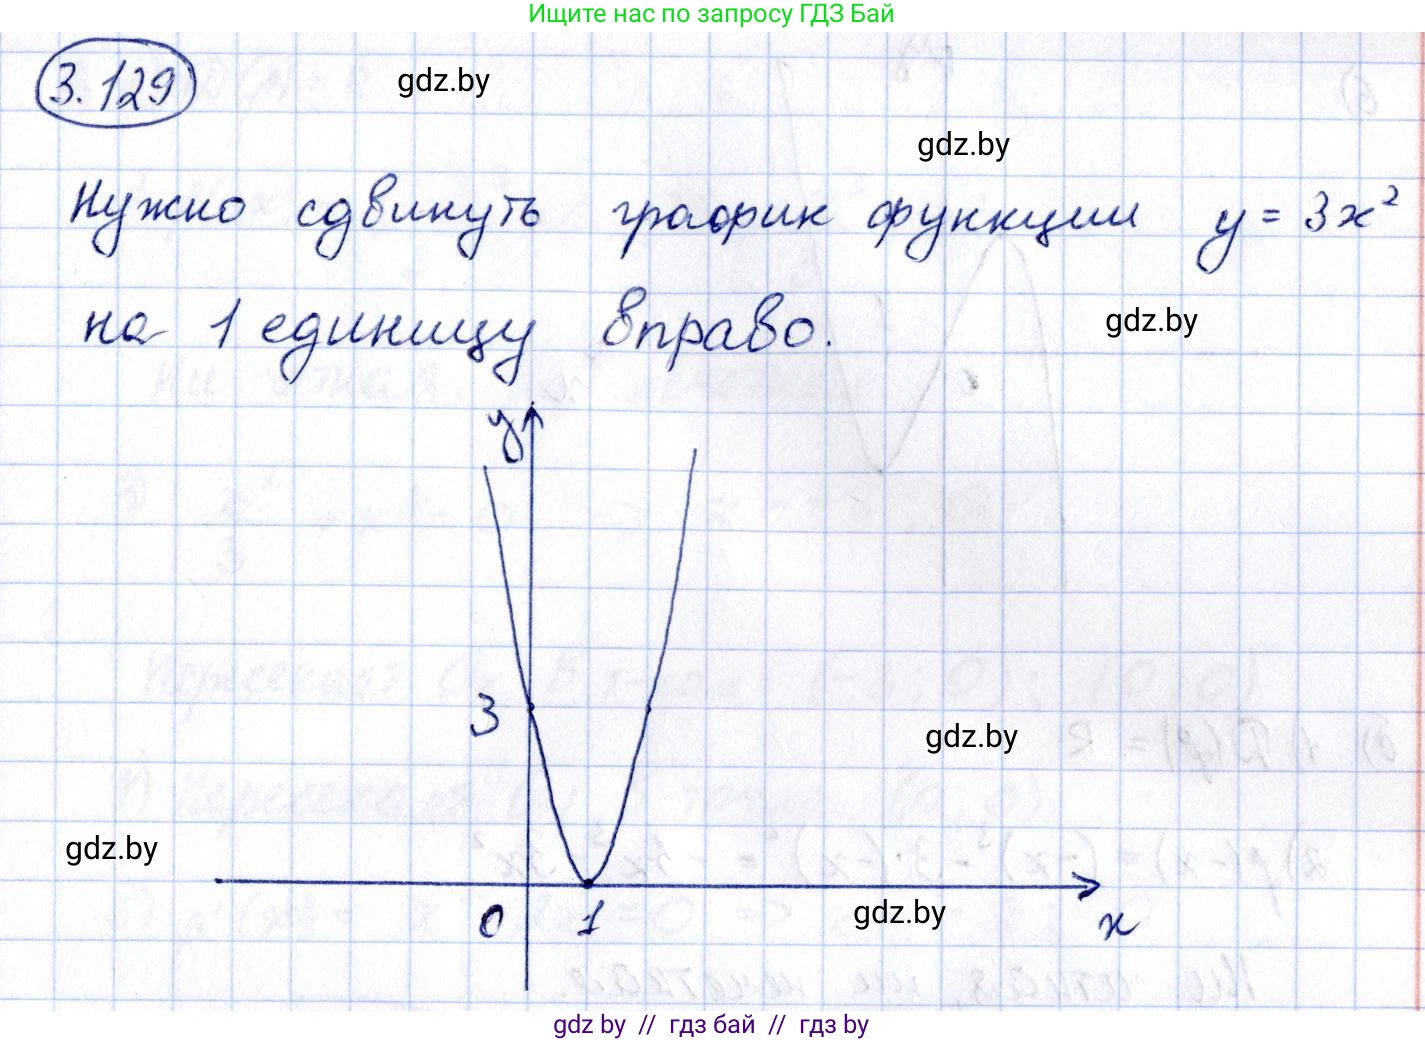 Ищите нас по запросу ГДЗ Бай
3.129
gdz.by
gdz.by
Нужно сдвинуть график функции y = 3x²
на 1 единицу вправо.
gdz.by
y
3
gdz.by
gdz.by
0 1
gdz.by
x
gdz by // гдз бай // гдз by